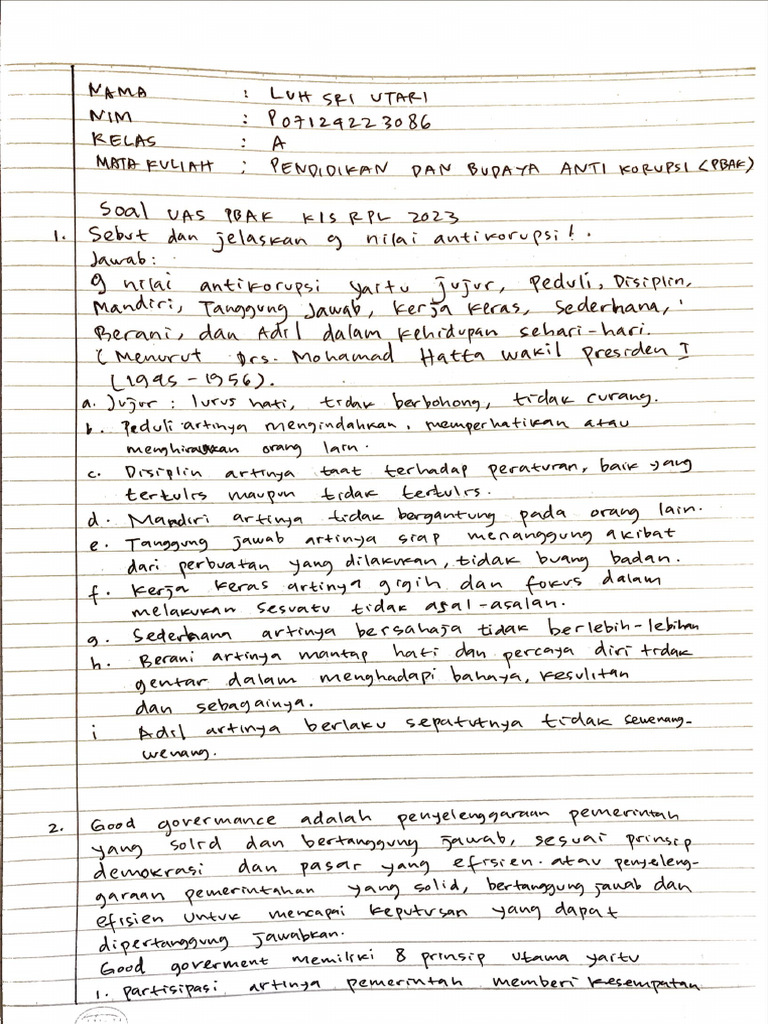 NAMA : LUH SRI UTARI
NIM : P07129223086
KELAS : A
MATA KULIAH : PENDIDIKAN DAN BUDAYA ANTI KORUPSI (PBAK)
Soal UAS PBAK KLS RPL 2023
1. Sebut dan jelaskan 9 nilai antikorupsi!.
Jawab:
9 nilai antikorupsi yaitu jujur, Peduli, Disiplin,
Mandiri, Tanggung Jawab, Kerja Keras, Sederhana,
Berani, dan Adil dalam kehidupan sehari-hari.
(Menurut Drs. Mohamad Hatta wakil presiden I
(1945 - 1956).
a. Jujur : lurus hati, tidak berbohong, tidak curang.
b. Peduli artinya mengindahkan, memperhatikan atau
menghiraukan orang lain.
c. Disiplin artinya taat terhadap peraturan, baik yang
tertulis maupun tidak tertulis.
d. Mandiri artinya tidak bergantung pada orang lain.
e. Tanggung jawab artinya siap menanggung akibat
dari perbuatan yang dilakukan, tidak buang badan.
f. Kerja keras artinya gigih dan fokus dalam
melakukan sesuatu tidak asal-asalan.
g. Sederhana artinya bersahaja tidak berlebih-lebihan
h. Berani artinya mantap hati dan percaya diri tidak
gentar dalam menghadapi bahaya, kesulitan
dan sebagainya.
i Adil artinya berlaku sepatutnya tidak sewenang-
wenang.
2. Good govermance adalah penyelenggaraan pemerintah
yang solid dan bertanggung jawab, sesuai prinsip
demokrasi dan pasar yang efisien. atau penyeleng-
garaan pemerintahan yang solid, bertanggung jawab dan
efisien untuk mencapai keputusan yang dapat
dipertanggung jawabkan.
Good goverment memiliki 8 prinsip utama yaitu
1. partisipasi artinya pemerintah memberi kesempatan